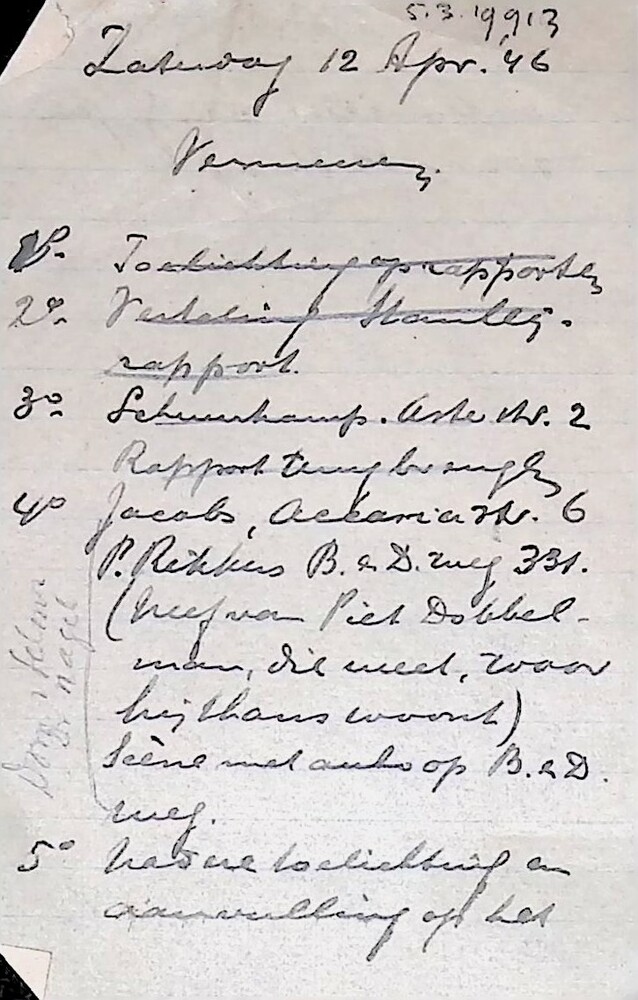 5.3.19913
Zaterdag 12 Apr. '46
1o. Toelichting op rapporten
2o. Vertaling Stanley-
rapport.
3o Scheurkamp. Aste str. 2
Rapport terugbrengen
4o Jacobs, Acacia str. 6
P. Rekkers B. & D. weg 331.
(neef van Piet Dobbel-
man, die weet, waar
hij thans woont)
Scène met auto op B. & D.
weg.
nagel
5o Nadere toelichting en
aanvulling op het